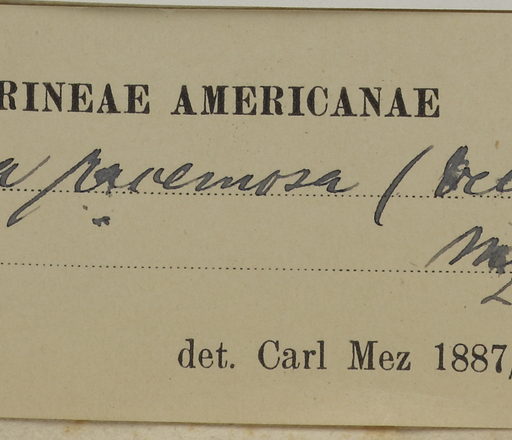 RINEAE AMERICANAE
a racemosa (Vell
Mez
det. Carl Mez 1887/